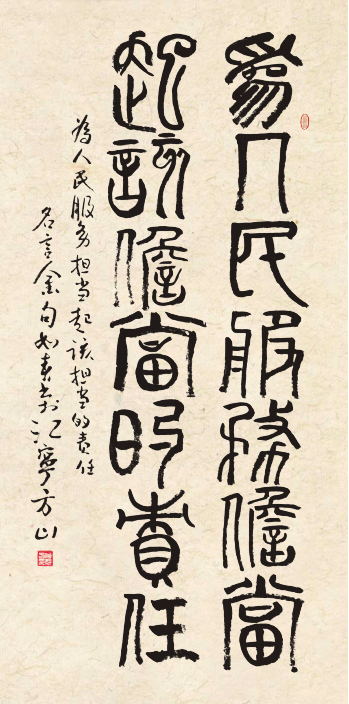 爲人民服務擔當
起該擔當的責任
为人民服务担当起该担当的责任
名言金句如春书于江寧方山